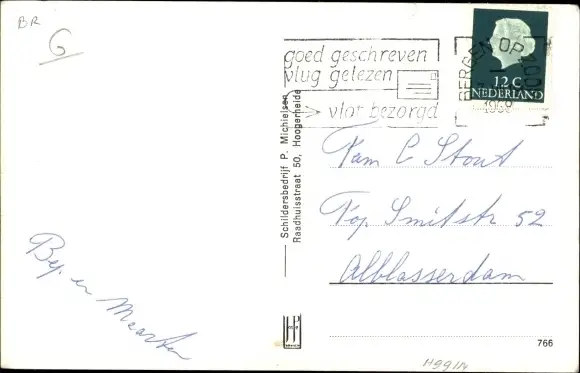 BR
G
goed geschreven
vlug gelezen
vlot bezorgd
BERGEN OP ZOOM
1968
12 C
NEDERLAND
Schildersbedrijf P. Michielsen
Raadhuisstraat 50, Hoogerheide
Fam C Stout
Kop Smitstr 52
Alblasserdam
Bep en
Maarten
766